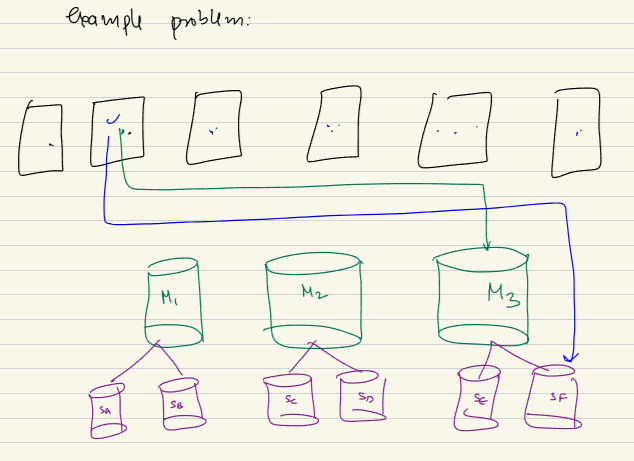 Example problem:
M1 M2 M3
SA SB SC SD SE SF